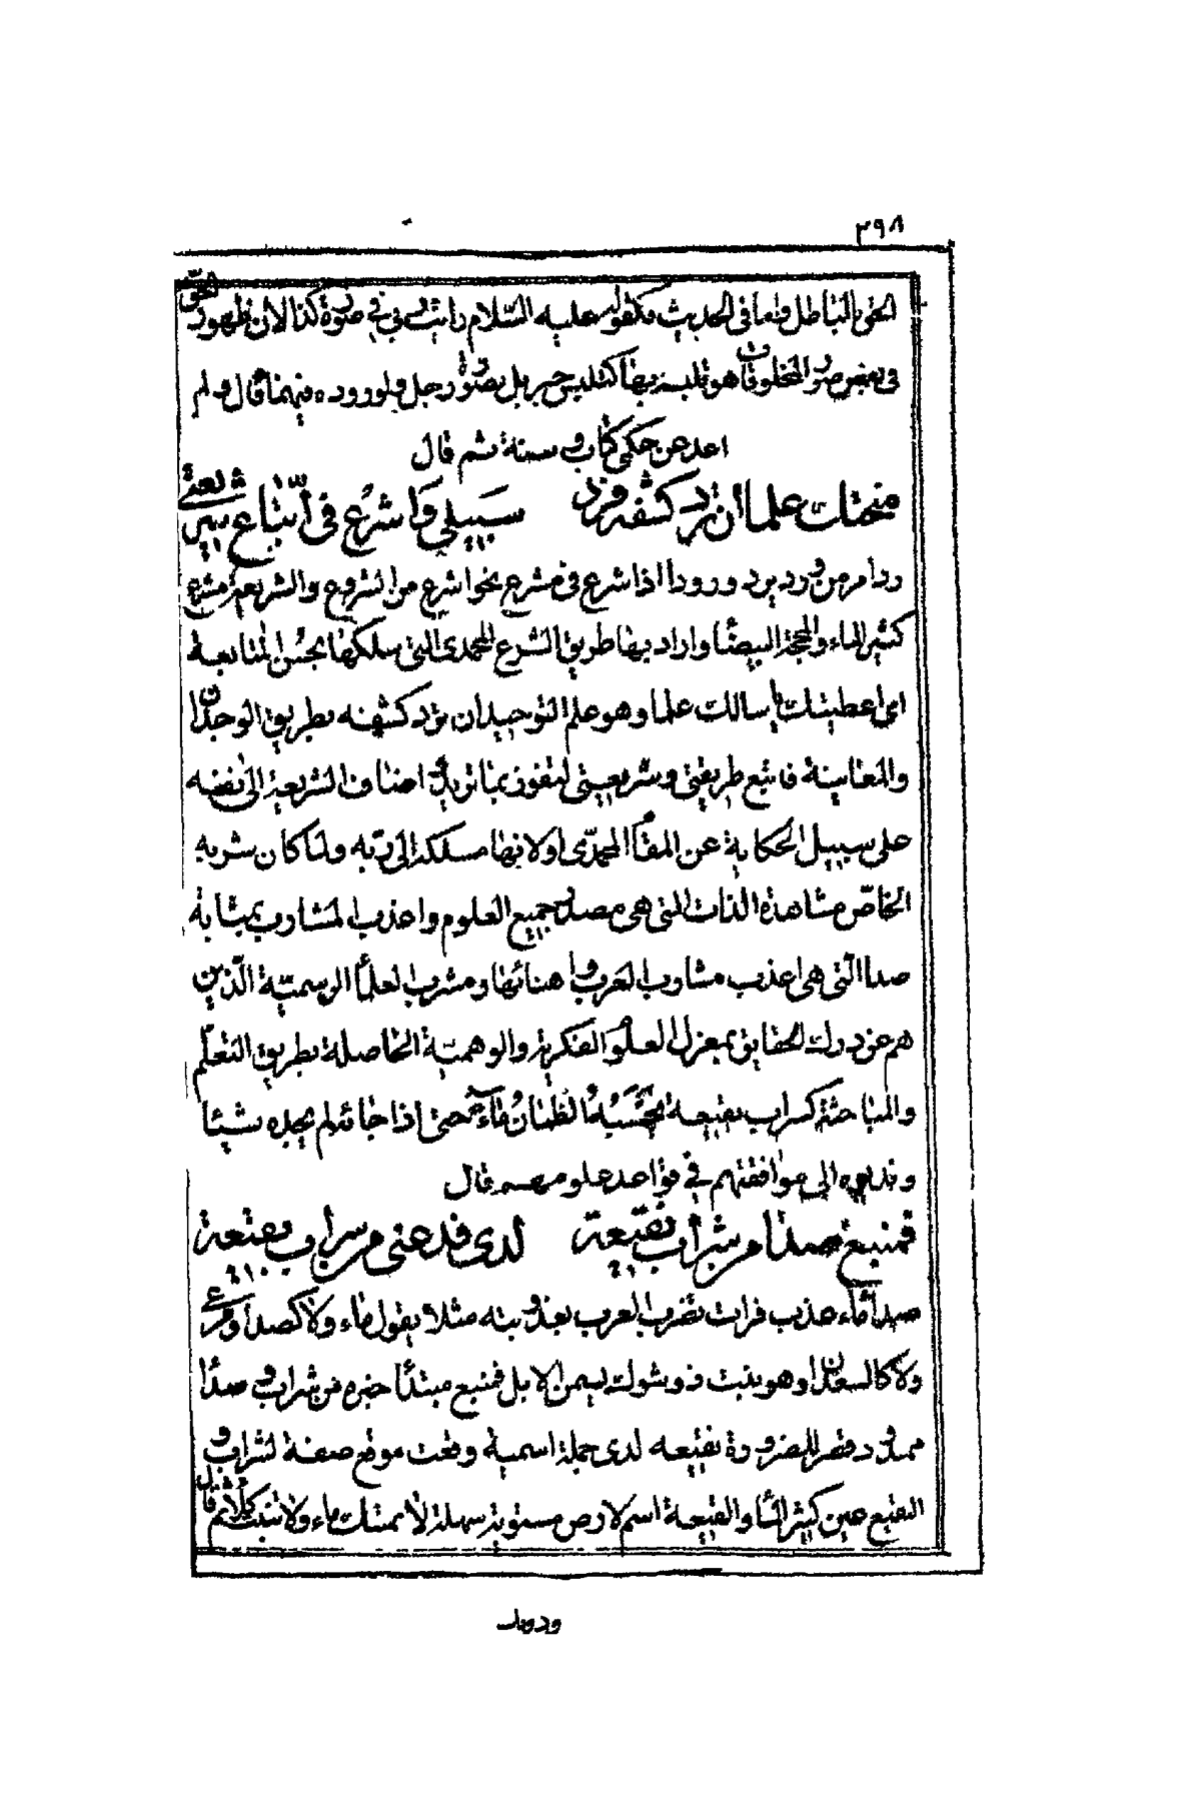 ٢٩٨
الحق بالباطل واما فى الحديث فكقوله عليه السّلام رايت ربى فى صورة كذا لان ظهور الحقّ
فى بعض صور المخلوقات هو تلبسه بها كتلبس جبريل بصورة رجل ولوروده فيهما قال ولم
اعد عن حكمى كتاب وسنة ثم قال
منحتك علما ان ترد كشفه فرد سبيلى واشرع فى اتّباع شريعتى
رد امر من ورد يرد ورودا اذا شرع فى مشرع نحو اشرع من الشروع والشريعة مشرع
كثير الماء والمحجة البيضا واراد بها طريق الشرع المحمدى التى سلكها بحسن المتابعة
اى اعطيتك يا سالك علما وهو علم التوحيد ان ترد كشفه بطريق الوجدان
والمعاينة فاتبع طريقتى وشريعتى لتفوز بما تريد اضاف الشريعة الى نفسه
على سبيل الحكاية عن المقام المحمّدى او لانها مسلكه الى ربّه ولما كان شربه
الخاصّ مشاهدة الذات التى هى مصدر جميع العلوم واعذب المشارب بمثابة
صدا التى هى اعذب مشارب العرب واهنائها ومشرب العلما الرسميّة الّذين
هم عن درك الحقايق بمعزل العلوم الفكرية والوهميّة الحاصلة بطريق التعلّم
والمباحثة كسراب بقيعة يحسبه الظمان ماء حتى اذا جائه لم يجده شيئا
وندبوه الى موافقتهم فى قواعد علومهم قال
فمنبع صدا من شراب نقيعه لدى فدعنى من سراب بقيعة
صدا ماء عذب فرات تضرب العرب بعذوبته مثلا يقول ماء ولا كصدا ومرعى
ولا كالسعدان وهو نبت ذو شوك يسمن الابل فمنبع مبتدأ خبره من شراب وصدّا
ممدود قصر للضرورة نقيعه لدى جملة اسمية وقعت موقع صفة لشراب و
النقيع عين كثير الماء والقيعة اسم لارض مستوية سهلة لا تمسك ماء ولا تنبت كلأ ثم قال
ودونك